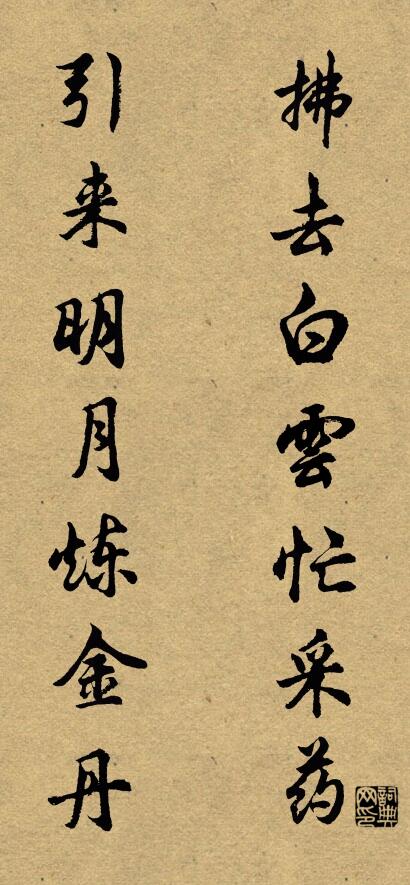 拂去白雲忙采药
引来明月炼金丹
詞典网印